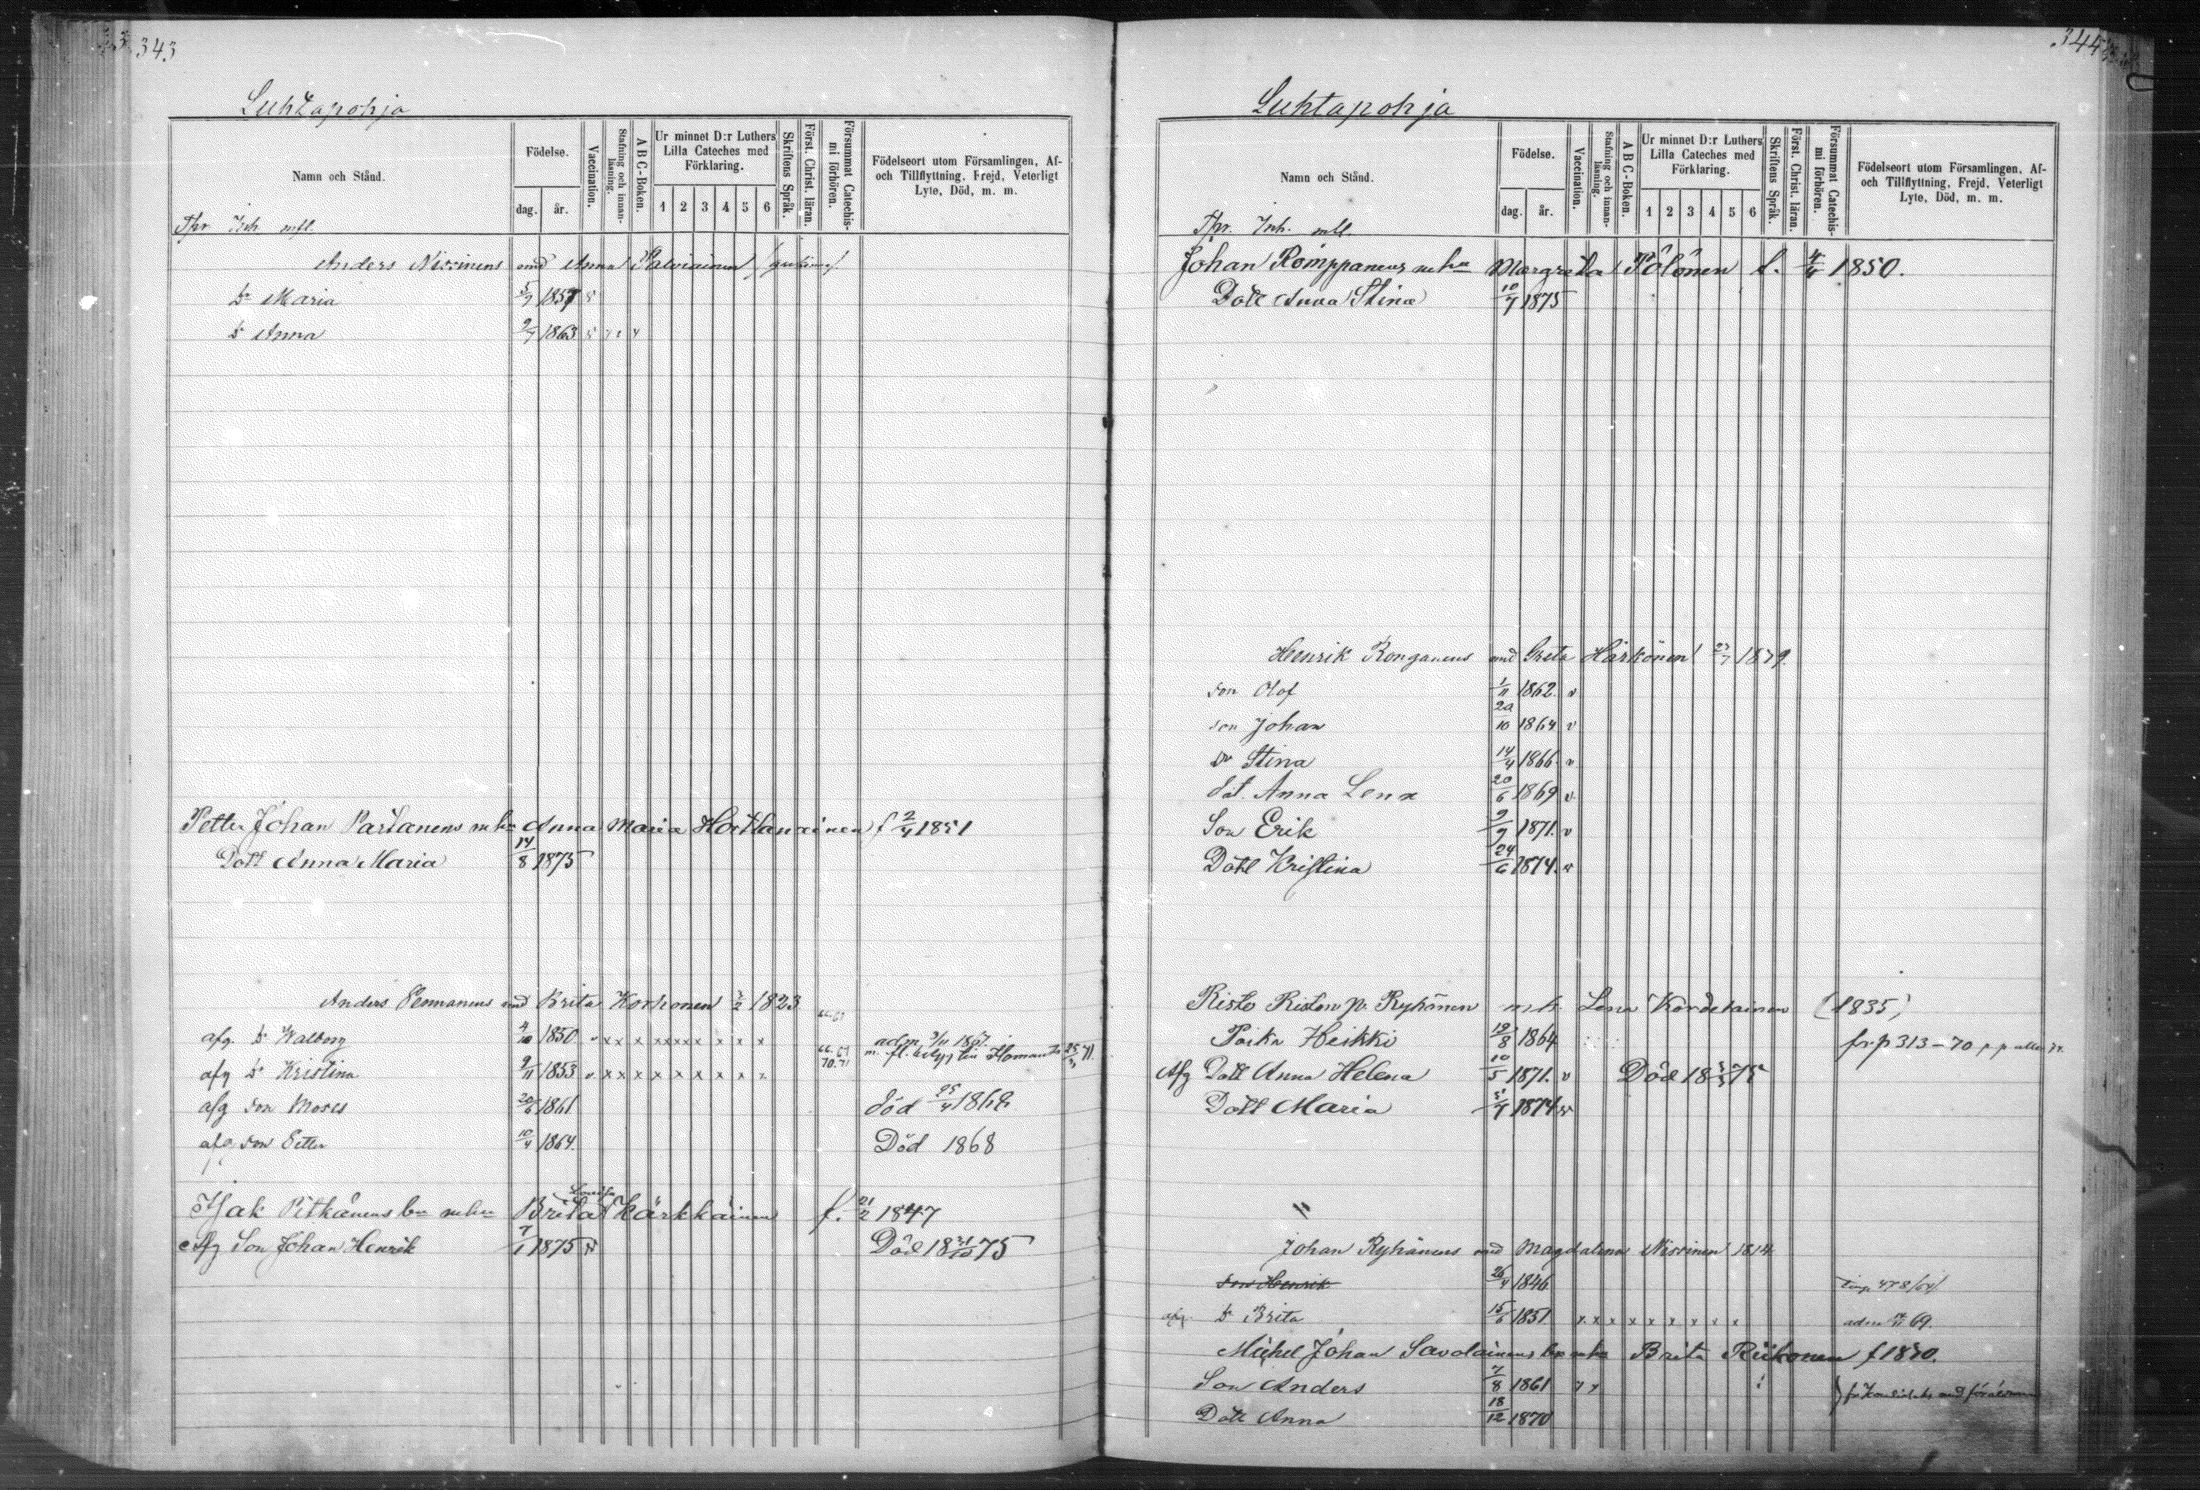 343
Luhtapohja
Namn och Stånd.
Födelse.
dag.
år.
Vaccination.
Stafning och innan-läsning.
A B C-Boken.
Ur minnet D:r Luthers Lilla Cateches med Förklaring.
1 2 3 4 5 6
Skriftens Språk.
Först. Christ. läran.
Försummat Catechis-mi förhören.
Födelseort utom Församlingen, Af- och Tillflyttning, Frejd, Veterligt Lyte, Död, m. m.
Thr. Inh. mfl.
Anders Nissinens med Anna
Dr Maria 5/7 1857
Dr Anna 9/7 1863
Petter Johan Partanens m hu Anna Maria f 2/4 1851
Dott Anna Maria 14/8 1875
Anders Pennanens med Brita Korhonen 3/2 1823
66.67
afg. Dr Walborg 4/10 1850 v x x x x x x x x x
adm. 3/11 1867.
afg Dr Kristina 9/11 1853 v x x x x x x x x x
66.67 70.71
afg Son Moses 20/6 1861 död 25/4 1868
afg Son Petter 10/4 1864. Död 1868
Isak Pitkänens m hu Brita Lovisa Kärkkäinen f. 21/2 1847
Afg Son Johan Henrik 7/1 1875 Död 18 31/12 75
344
Luhtapohja
Namn och Stånd.
Födelse.
dag.
år.
Vaccination.
Stafning och innan-läsning.
A B C-Boken.
Ur minnet D:r Luthers Lilla Cateches med Förklaring.
1 2 3 4 5 6
Skriftens Språk.
Först. Christ. läran.
Försummat Catechis-mi förhören.
Födelseort utom Församlingen, Af- och Tillflyttning, Frejd, Veterligt Lyte, Död, m. m.
Thr. Inh. mfl.
Johan Romppanens m hu Margreta Pölönen f. 1850.
Dott Anna Stina 10/7 1875
Henrik Ronganens med Greta Härkönen 27/7 1839.
Son Olof 1/11 1862. v
son Johan 20/10 1864 v
Dr Stina 14/4 1866. v
dot. Anna Lena 20/6 1869 v
Son Erik 9/9 1871. v
Dott Kristina 24/6 1874. v
Risto Ristonp. Ryhänen m. h. Lena (1835)
Poika Heikki 19/8 1864 fr. p 313 - 70
Afg Dott Anna Helena 10/5 1871. v Död 18 75
Dott Maria 5/4 1874 v
"
Johan Ryhänens med Magdalena Nissinen 1814
son Henrik 26/4 1846
afg. Dr Brita 15/6 1851 x x x x x x x x x adm 69.
Michel Johan Savolainens m hu Brita Riikonen f 1830.
Son Anders 7/8 1861
Dott Anna 18/12 1870